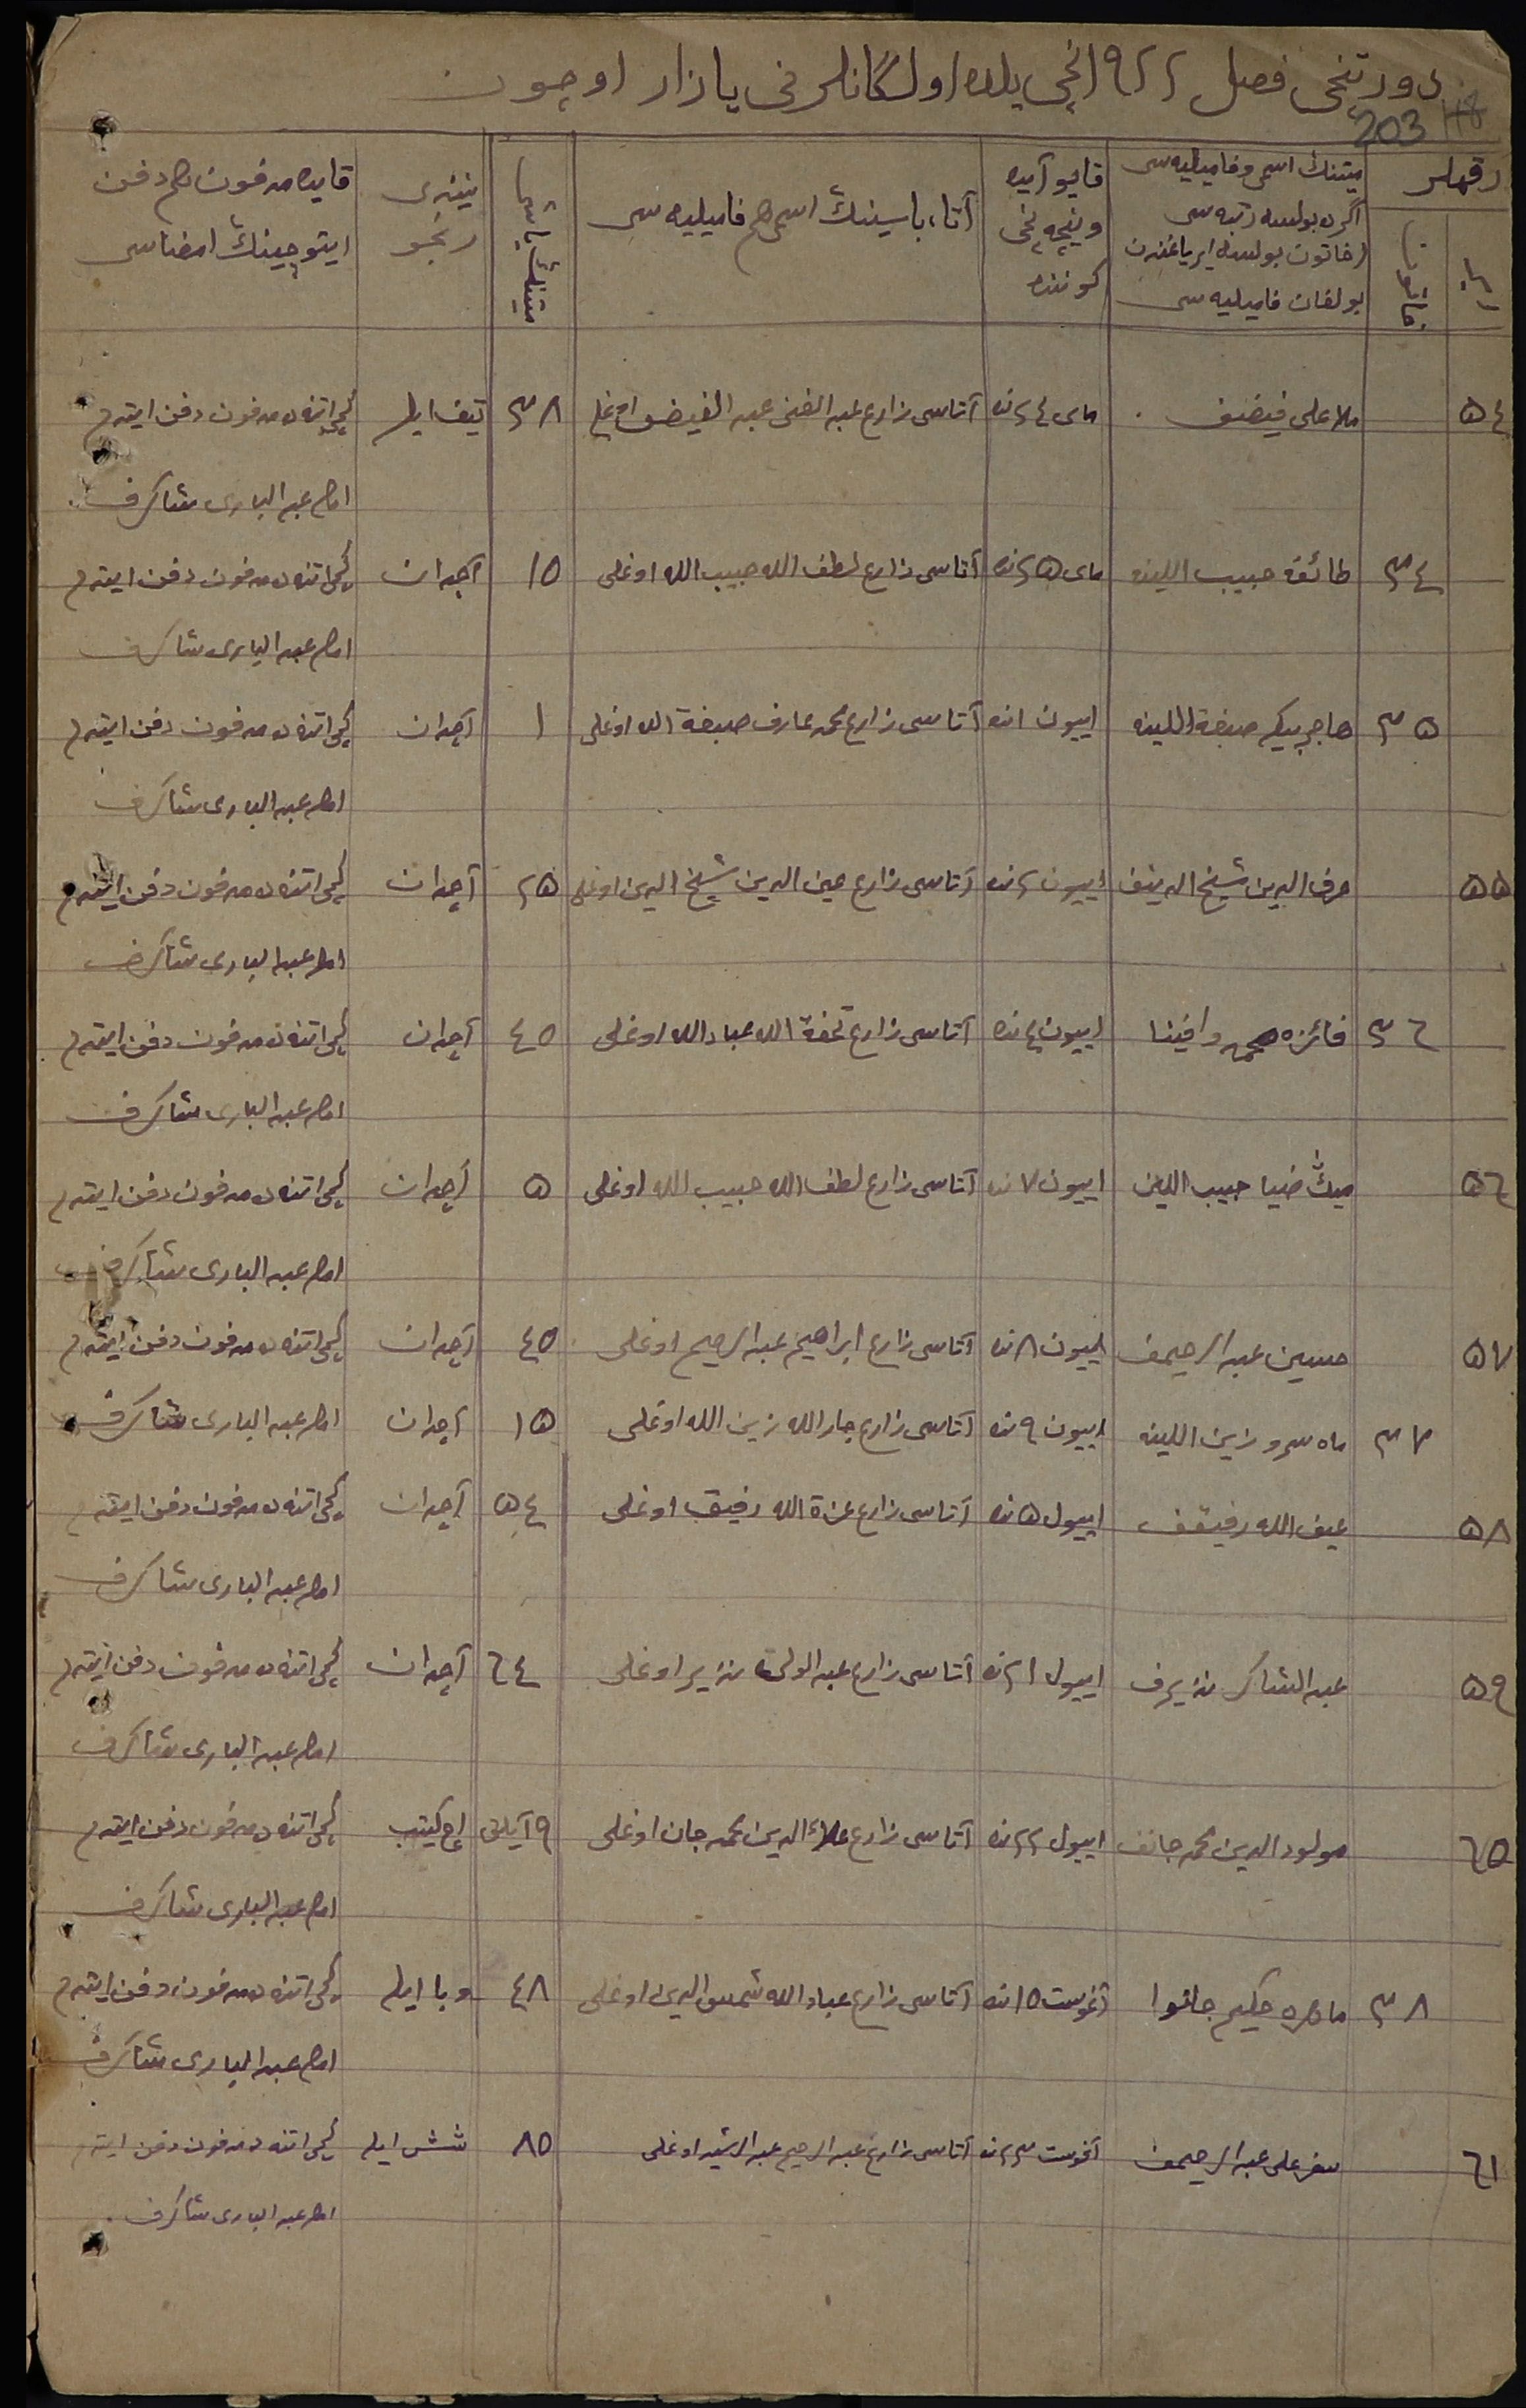 دورتنچی فصل ۱۹۲۲ نچی یلده اولگانلرنی یازار اوچون
203
رقملر
میتنڭ اسمی و فامیلیه سی
اگرده بولسه رتبه سی
(خاتون بولسه ایر یاغندن
بولغان فامیلیه سی
قایو آیده
ونیچه نچی
کوننده
آتا، باسینڭ اسمی هم فامیلیه سی
میتنڭ یاشی
نیندی
رنجو
قایده مدفون هم دفن
ایتوچینڭ امضاسی
٥٤ ملا علی فیضف مای ٢٤ نده آتاسی زارع عبد الغنی عبد الفیض اوغلی ٣٨ تیف ایله کچی اتنه ده مدفون دفن ایتدم
امام عبد الباری شاکرف
٣٤ طائفه حبیب اللینه مای ٢٥ نده آتاسی زارع لطف الله حبیب الله اوغلی ١٥ آچدان کچی اتنه ده مدفون دفن ایتدم
امام عبد الباری شاکرف
٣٥ هاجر بیکه صبغة اللینه اییون ١ نده آتاسی زارع محمد عارف صبغة الله اوغلی ١ آچدان کچی اتنه ده مدفون دفن ایتدم
امام عبد الباری شاکرف
٥٥ صرف الدین شیخ الدینف اییون ٢ نده آتاسی زارع عین الدین شیخ الدین اوغلی ٢٥ آچدان کچی اتنه ده مدفون دفن ایتدم
امام عبد الباری شاکرف
٣٦ فائزه اییون ٤ نده آتاسی زارع تحفة الله عباد الله اوغلی ٤٥ آچدان کچی اتنه ده مدفون دفن ایتدم
امام عبد الباری شاکرف
٥٦ میڭ ضیا حبیب اللین اییون ٧ نده آتاسی زارع لطف الله حبیب الله اوغلی ٥ آچدان کچی اتنه ده مدفون دفن ایتدم
امام عبد الباری شاکرف
٥٧ حسین عبد الرحیمف اییون ٨ نده آتاسی زارع ابراهیم عبد الرحیم اوغلی ٤٥ آچدان کچی اتنه ده مدفون دفن ایتدم
٣٧ ماه سرور زین اللینه اییون ٩ نده آتاسی زارع جار الله زین الله اوغلی ١٥ آچدان امام عبد الباری شاکرف
٥٨ عیف الله رفیقف اییول ٥ نده آتاسی زارع عزة الله رفیق اوغلی ٥٤ آچدان کچی اتنه ده مدفون دفن ایتدم
امام عبد الباری شاکرف
٥٩ عبد الشاکر نذیرف اییول ٢١ نده آتاسی زارع عبد الولی نذیر اوغلی ٦٤ آچدان کچی اتنه ده مدفون دفن ایتدم
امام عبد الباری شاکرف
٦٥ مولود الدین محمد جانف اییول ٢٢ نده آتاسی زارع علاء الدین محمد جان اوغلی ٩ آیلق اچ کیتب کچی اتنه ده مدفون دفن ایتدم
امام عبد الباری شاکرف
٣٨ ماهره حکیم جانوا آغوست ١٥ نده آتاسی زارع عباد الله شمس الدین اوغلی ٤٨ وبا ایله کچی اتنه ده مدفون دفن ایتدم
امام عبد الباری شاکرف
٦١ سفر علی عبد الرحیمف آغوست ٢٣ نده آتاسی زارع عبد الرحیم عبد الرشید اوغلی ٨٥ شش ایله کچی اتنه ده مدفون دفن ایتدم
امام عبد الباری شاکرف